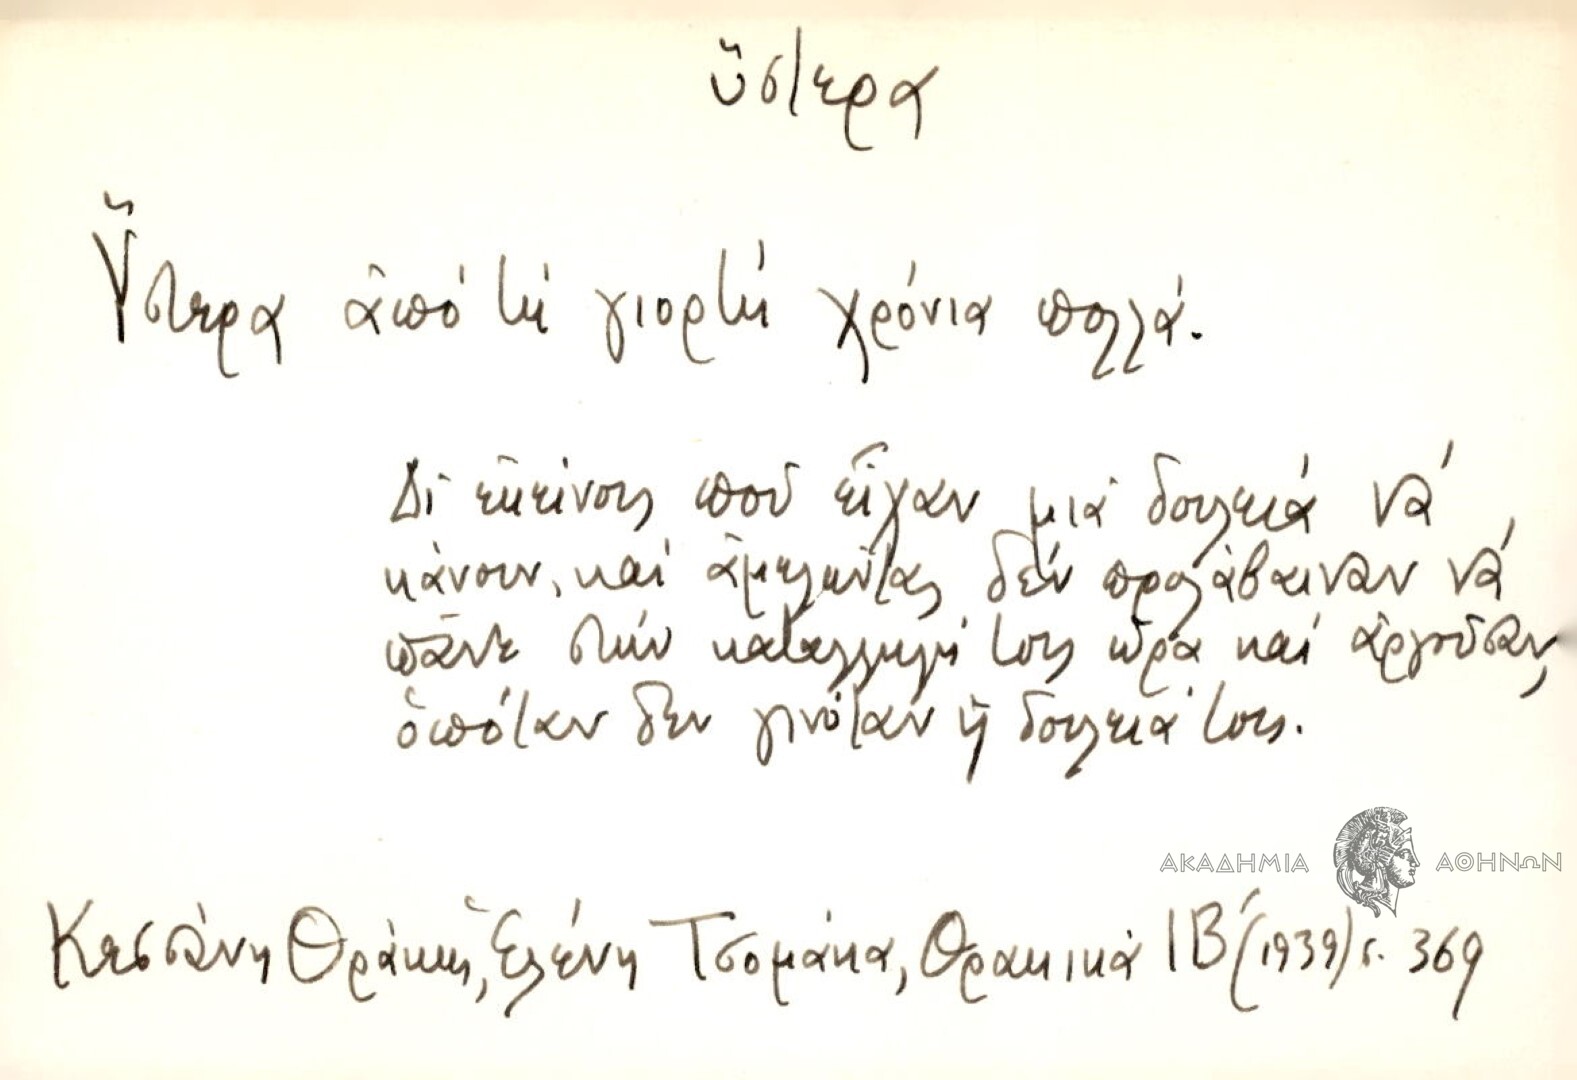 ὕστερα
Ὕστερα ἀπό τή γιορτή χρόνια πολλά.
Δι' ἐκείνους πού εἶχαν μιά δουλειά νά
κάνουν, καί ἀμελῶντας δέν προλάβαιναν νά
πᾶνε στήν κατάλληλή τους ὥρα καί ἀργοῦσαν,
ὁπόταν δέν γινόταν ἡ δουλειά τους.
ΑΚΑΔΗΜΙΑ ΑΘΗΝΩΝ
Κεσσάνη Θράκης, Ἑλένη Τσομάκα, Θρακικά ΙΒ' (1939) σ. 369